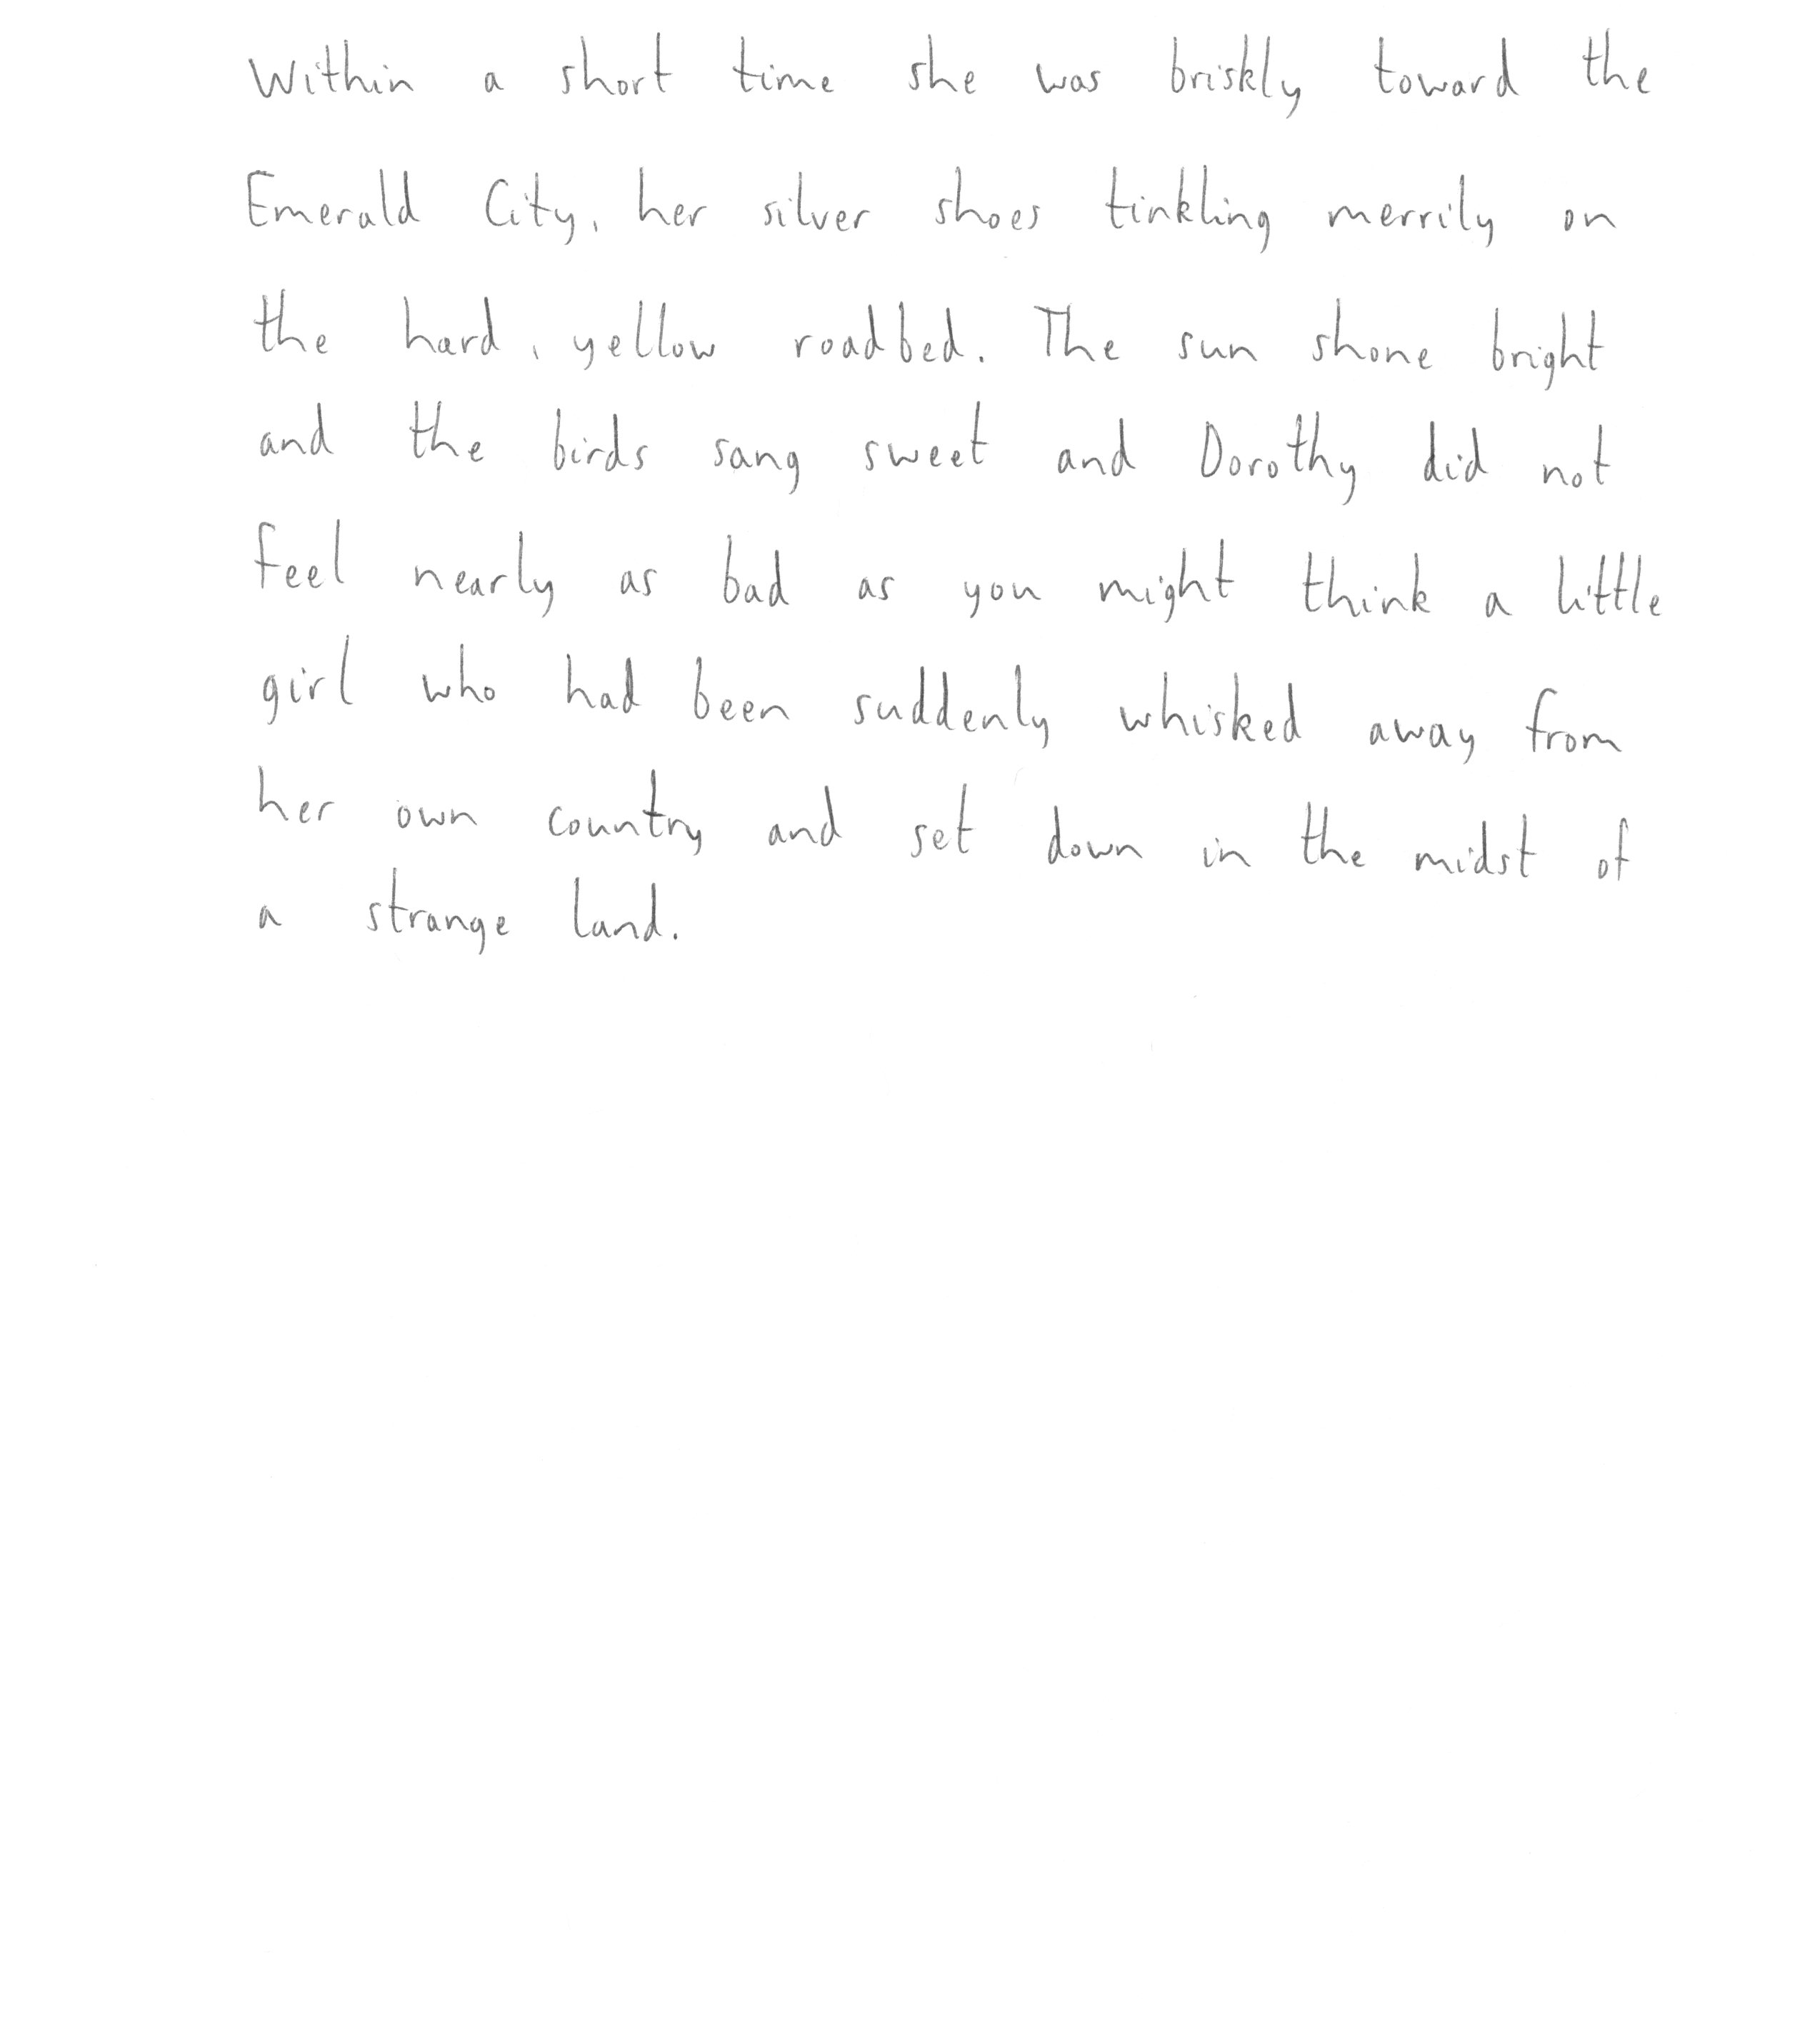 Within a short time she was briskly toward the
Emerald City, her silver shoes tinkling merrily on
the hard, yellow roadbed. The sun shone bright
and the birds sang sweet and Dorothy did not
feel nearly as bad as you might think a little
girl who had been suddenly whisked away from
her own country and set down in the midst of
a strange land.